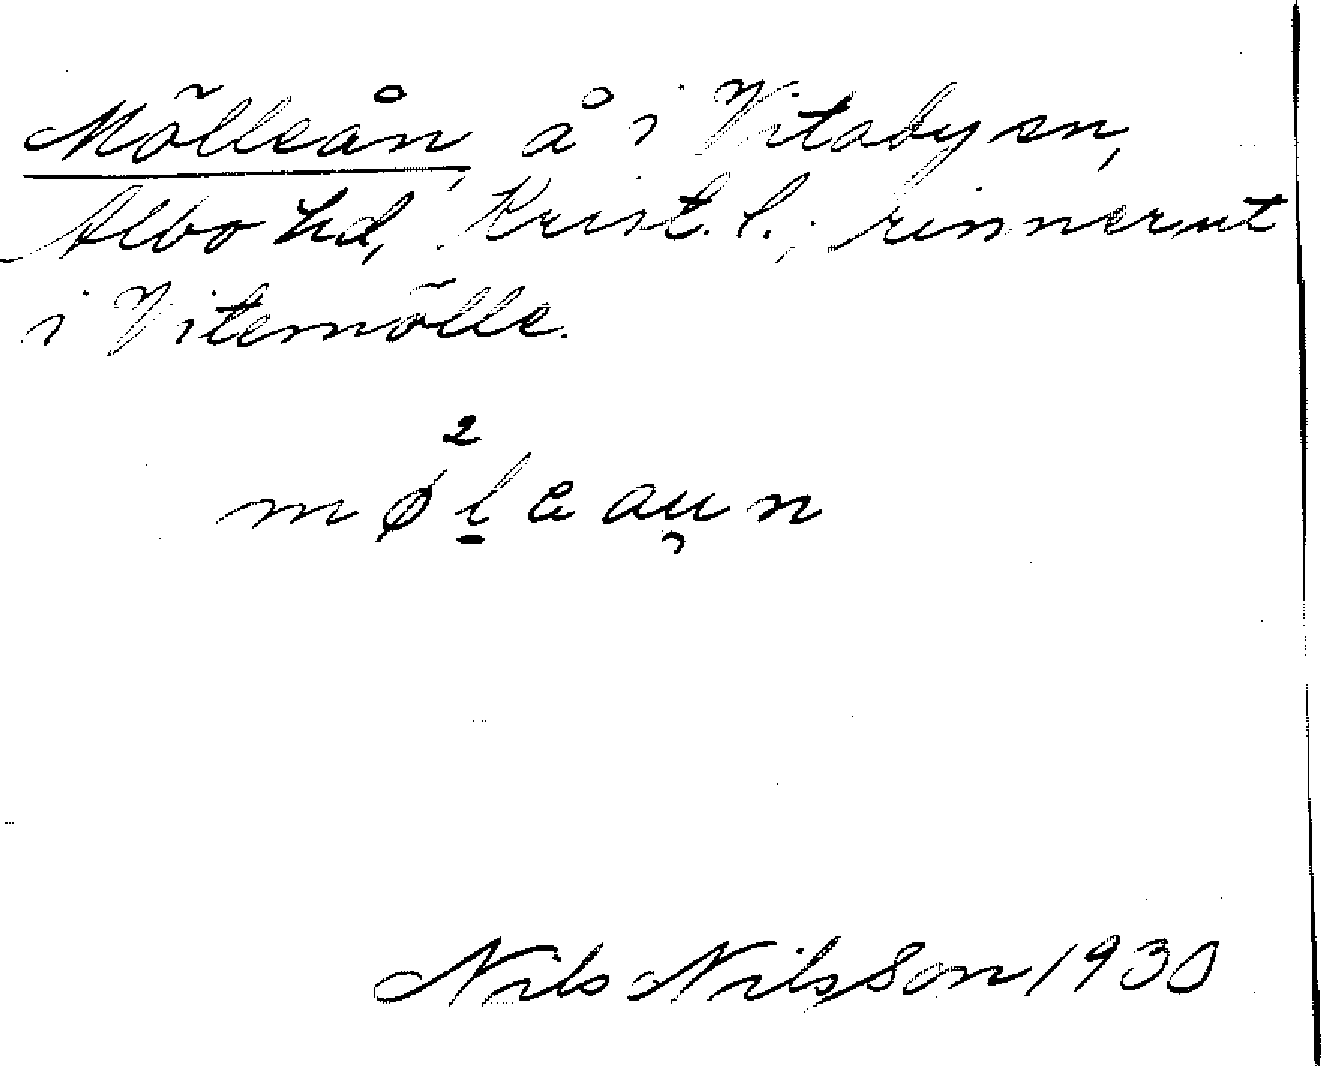 Mölleån, å i Vitaby sn,
Albo hd, Krist. l.; rinner ut
i Vitemölle.
2
møl̠eau̯n
Nils Nilsson 1930